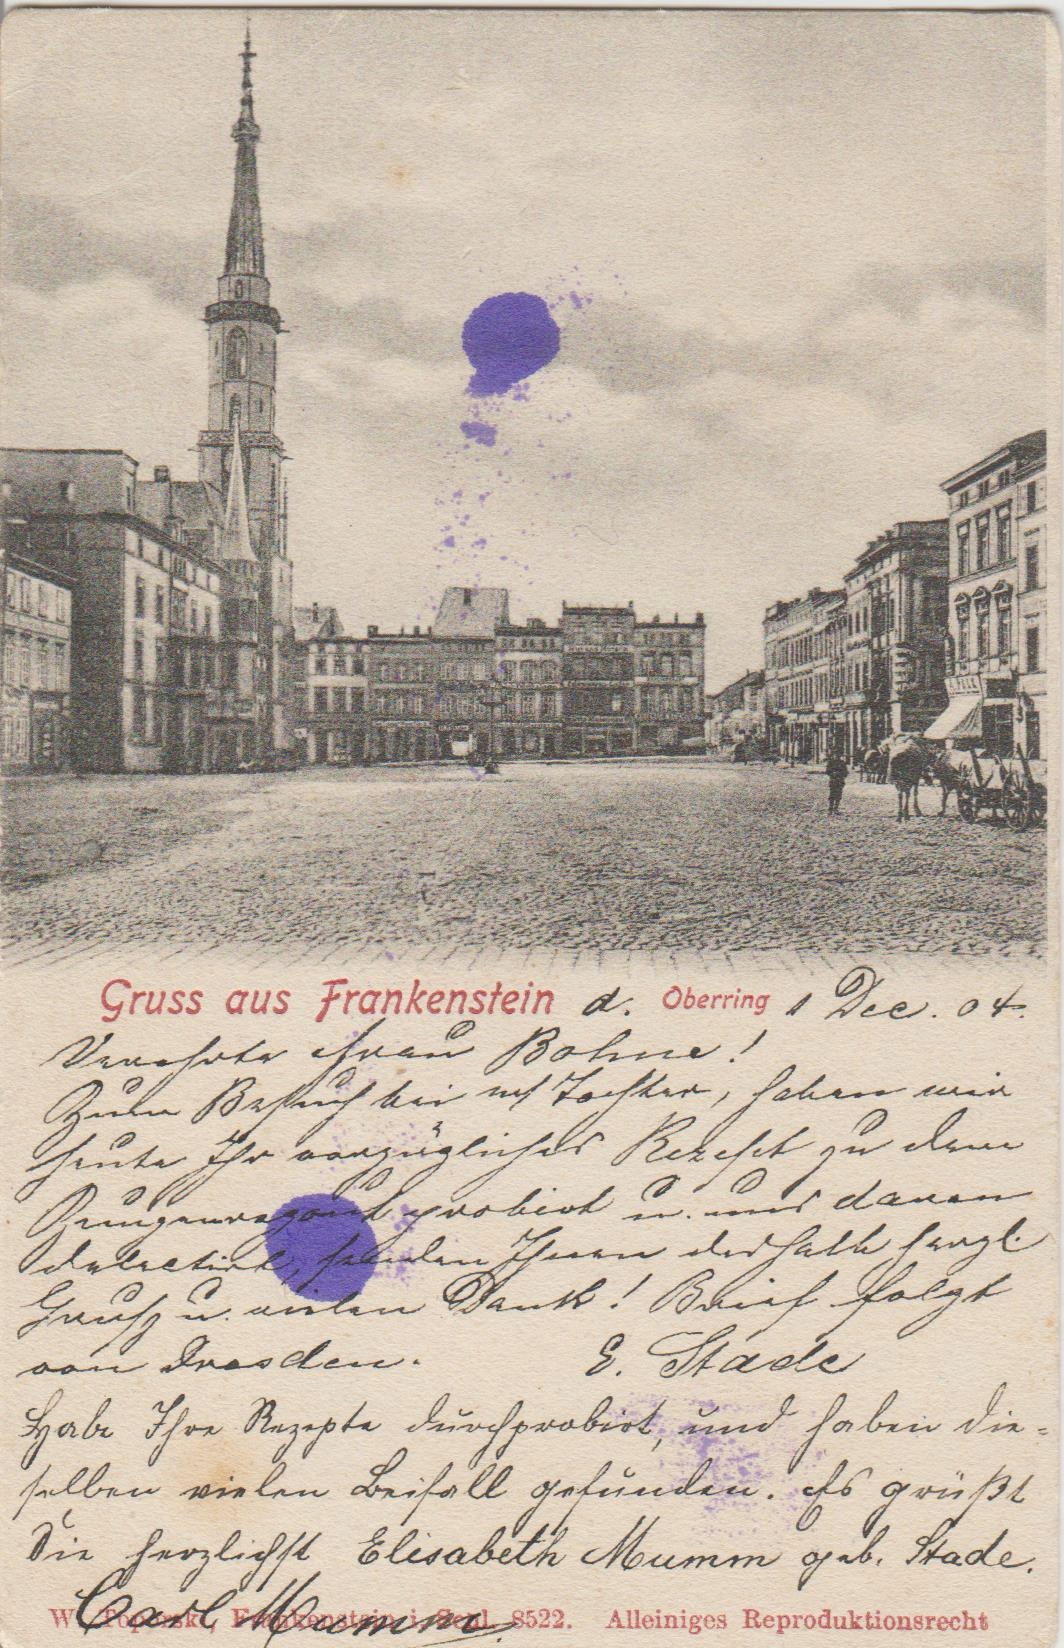 Gruss aus Frankenstein d. Oberring 1 Dec. 04.
Verehrte Frau Bohne!
Zum Besuch bei Tochter, haben wir
heute Ihr vorzügliches Rezept zu dem
Zungenragout probirt u. uns daran
delectirt, senden Ihnen deshalb herzl.
Gruß u. vielen Dank! Brief folgt
von Dresden. E. Stade
Habe Ihre Rezepte durchprobirt, und haben die-
selben vielen Beifall gefunden. Es grüßt
Sie herzlichst Elisabeth Mumm geb. Stade.
Carl Mumm.
W. Frankenstein i. Schl. 8522. Alleiniges Reproduktionsrecht